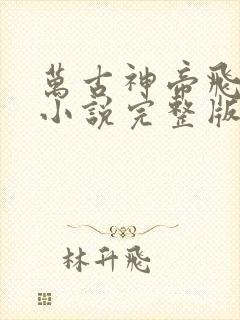 萬古神帝飛
小說完整版
林升飛